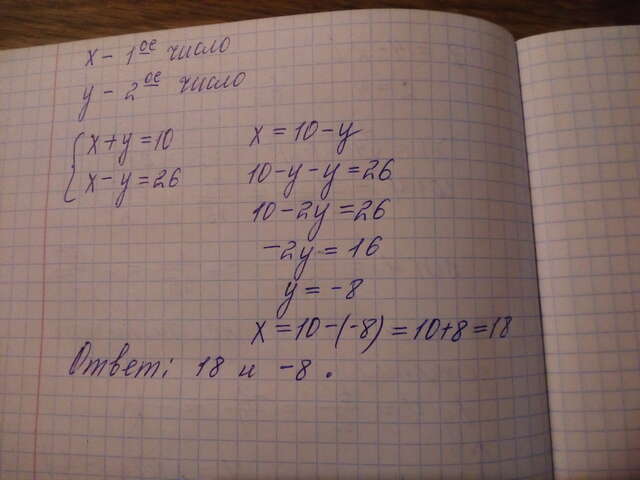 x – 1ое число
y – 2ое число
{ x+y=10
x-y=26
x = 10-y
10-y-y=26
10-2y=26
-2y=16
y=-8
x=10-(-8)=10+8=18
Ответ: 18 и -8.